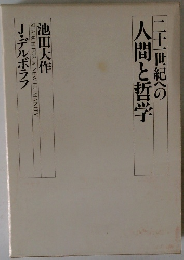 二十一世紀への
人間と哲学
池田大作
J・デルボラフ